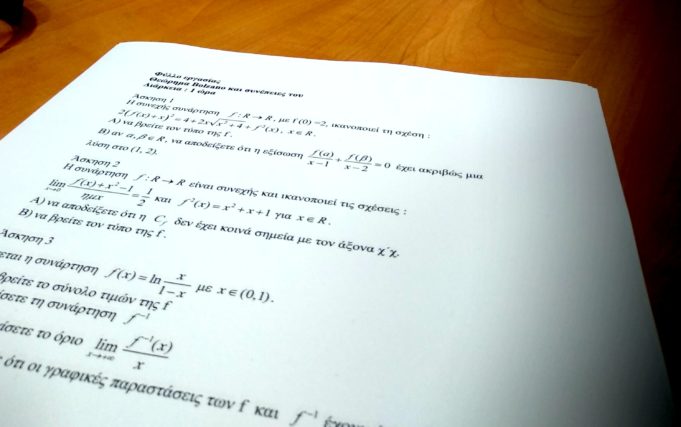 Φύλλο εργασίας
Θεώρημα Bolzano και συνέπειες του
Διάρκεια : 1 ώρα
Άσκηση 1
Η συνεχής συνάρτηση f : R → R, με f (0) =2, ικανοποιεί τη σχέση :
2(f(x)+x)² = 4+2x√x²+4 + f²(x), x ∈ R.
Α) να βρείτε τον τύπο της f.
Β) αν α, β ∈ R, να αποδείξετε ότι η εξίσωση f(α)/(x−1) + f(β)/(x−2) = 0 έχει ακριβώς μια
λύση στο (1, 2).
Άσκηση 2
Η συνάρτηση f : R → R είναι συνεχής και ικανοποιεί τις σχέσεις :
lim x→0 (f(x)+x²−1)/ημx = 1/2 και f²(x) = x²+x+1 για x ∈ R.
Α) να αποδείξετε ότι η C_f δεν έχει κοινά σημεία με τον άξονα χ΄χ.
Β) να βρείτε τον τύπο της f.
Άσκηση 3
εται η συνάρτηση f(x) = ln x/(1−x) με x ∈ (0,1).
βρείτε το σύνολο τιμών της f
σετε τη συνάρτηση f⁻¹
άσετε το όριο lim x→+∞ f⁻¹(x)/x
ότι οι γραφικές παραστάσεις των f και f⁻¹